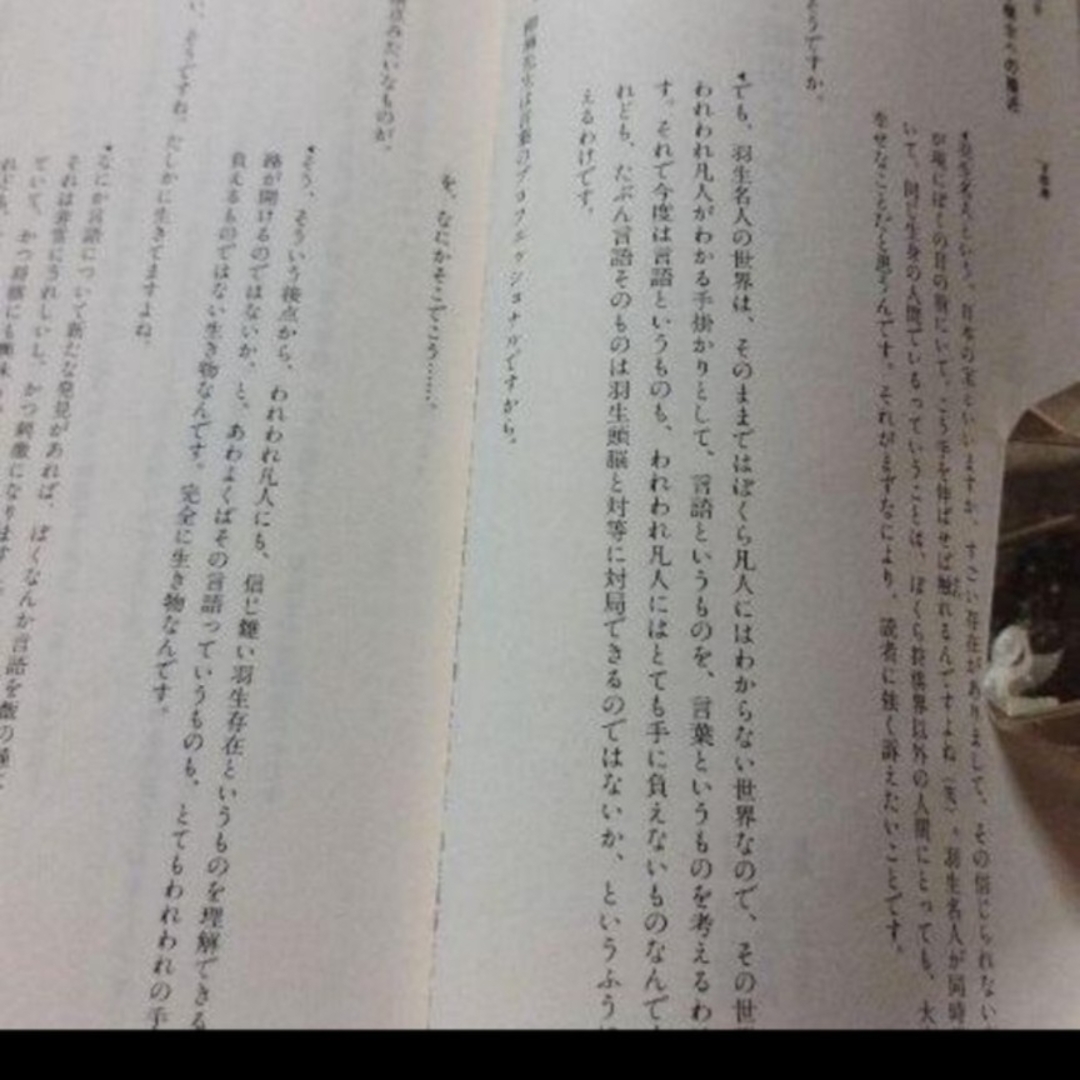 羽生名人という、日本の宝といいますか、すごい存在がありまして、その信じられない
現にぼくの目の前にいて、こう手を伸ばせば触れるんですよね(笑)。羽生名人が同時
いて、同じ生身の人間でいるっていうことは、ぼくら将棋界以外の人間にとっても、大
幸せなことだと思うんです。それがまずなにより、読者に強く訴えたいことです。
そうですか。
でも、羽生名人の世界は、そのままではぼくら凡人にはわからない世界なので、その世
われわれ凡人がわかる手掛かりとして、言語というものを、言葉というものを考えるわ
す。それで今度は言語というものも、われわれ凡人にはとても手に負えないものなんで
れども、たぶん言語そのものは羽生頭脳と対等に対局できるのではないか、というふう
えるわけです。
先生は言葉のプロフェッショナルですから。
を、なにかそこでこう……。
みたいなものが。
そう、そういう接点から、われわれ凡人にも、信じ難い羽生存在というものを理解できる
路が開けるのではないか、と、あわよくばその言語っていうものも、とてもわれわれの手
負えるものではない生き物なんです。完全に生き物なんです。
い、そうですね。たしかに生きてますよね。
なにか言語について新たな発見があれば、ぼくなんか言語を
それは非常にうれしいし、かつ刺激になります
ていて、かつ将棋にも興味
れども、